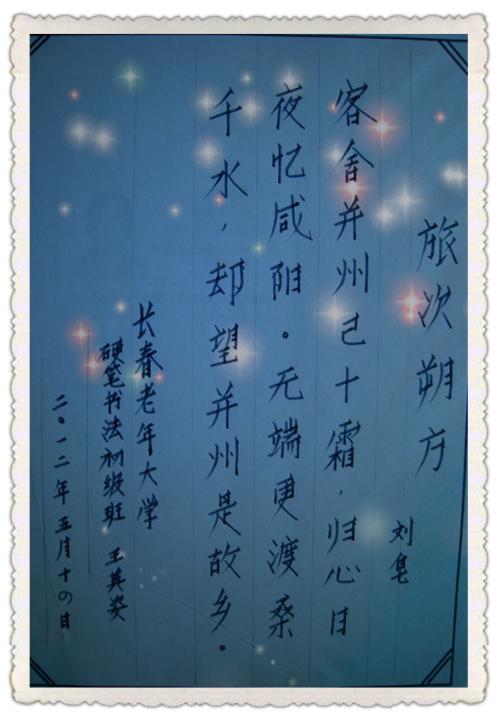 旅次朔方
刘皂
客舍并州已十霜，归心日
夜忆咸阳。无端更渡桑
千水，却望并州是故乡。
长春老年大学
硬笔书法初级班 王英姿
二〇一二年五月十四日